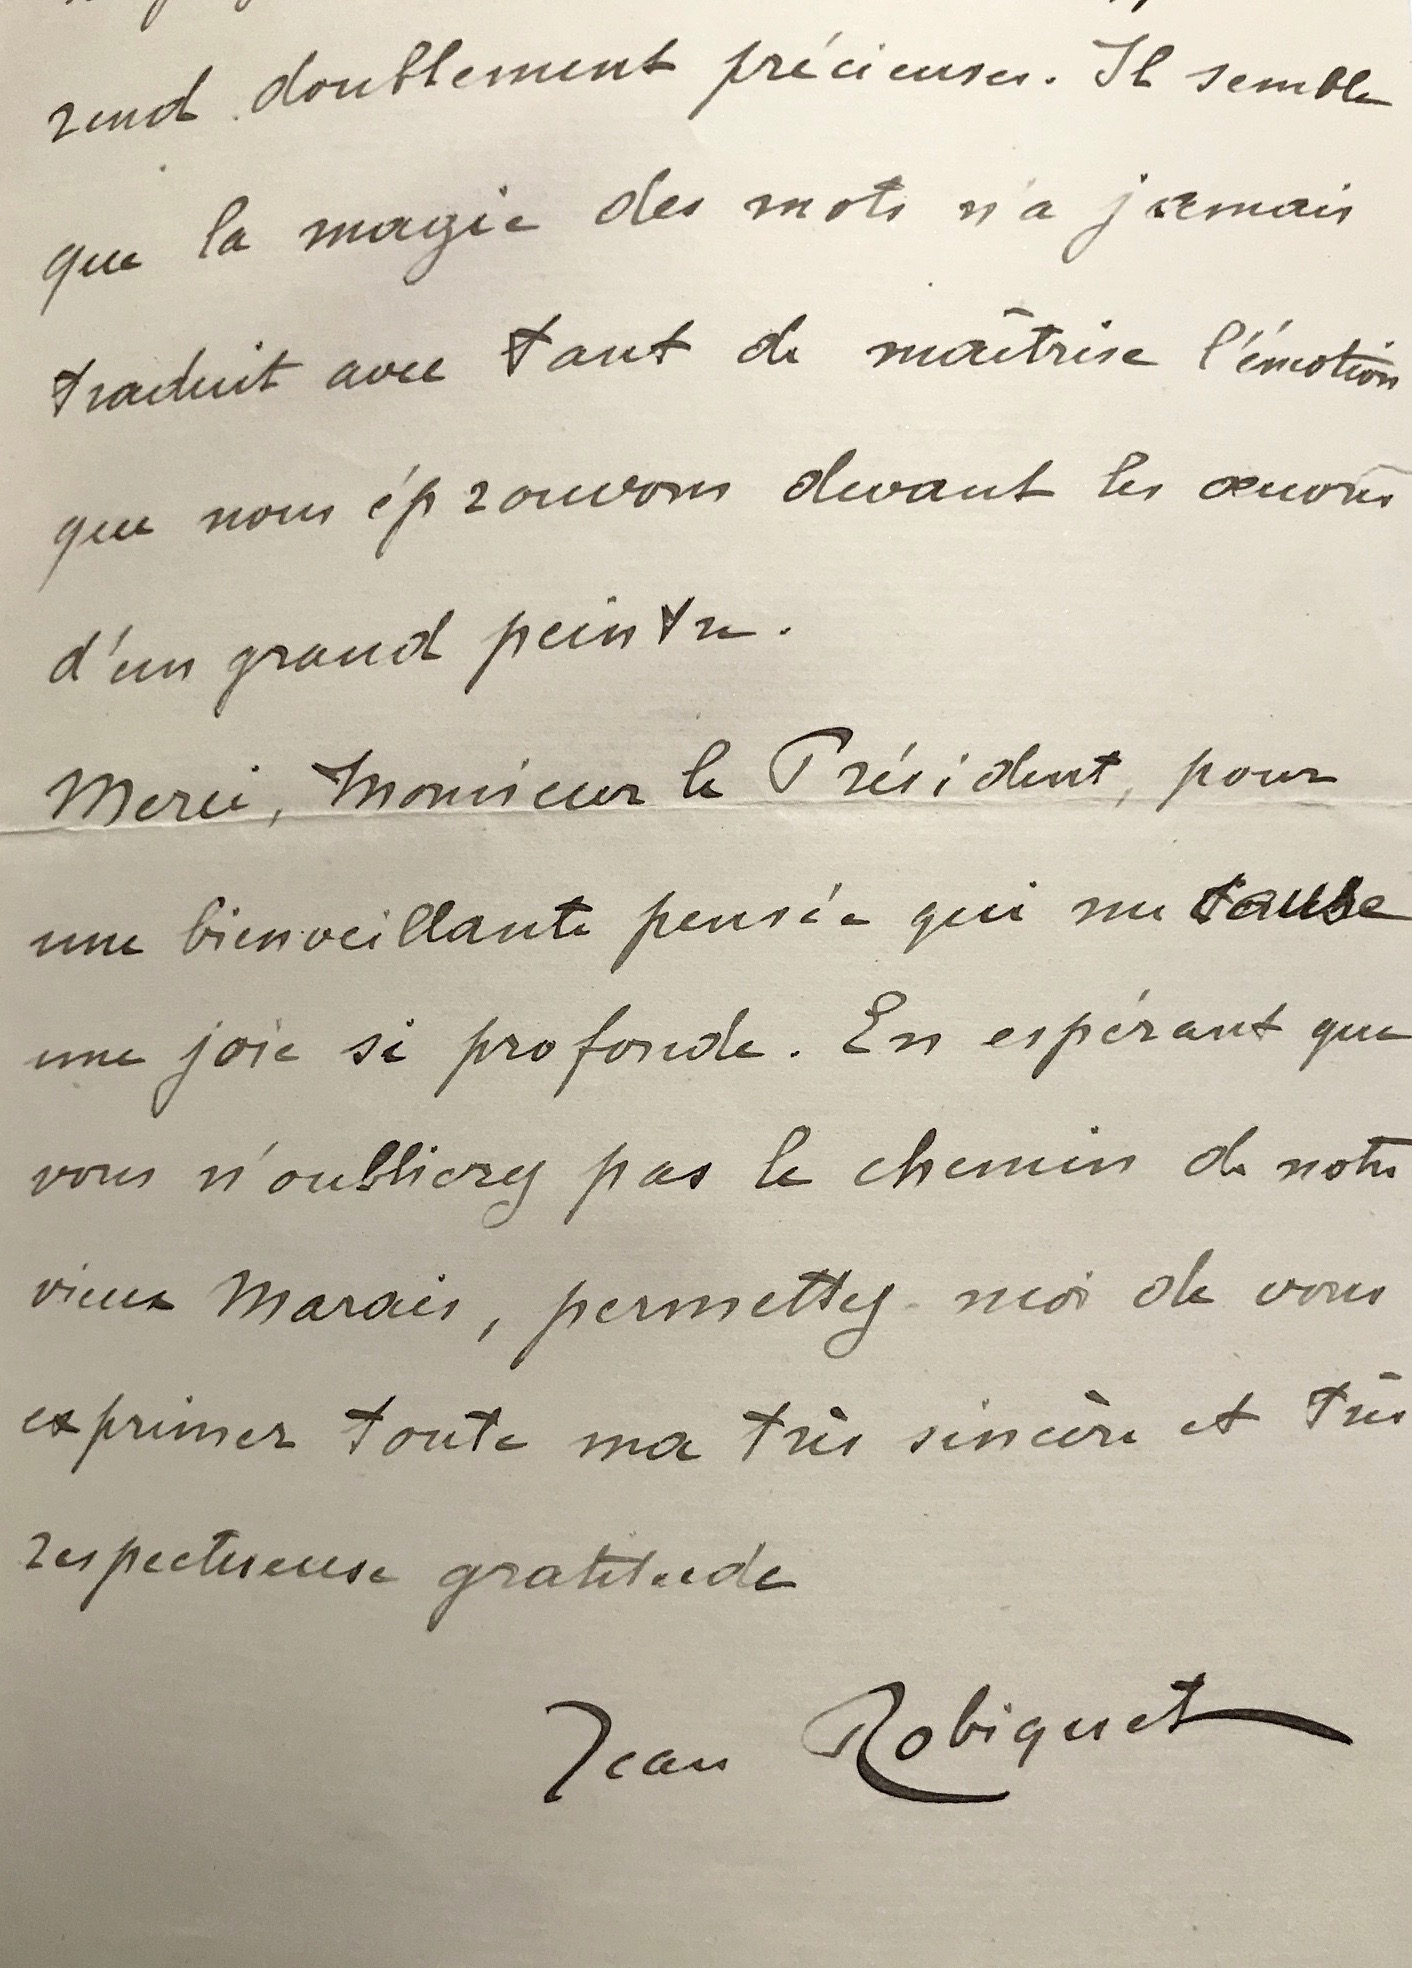 rend doublement précieuses. Il semble
que la magie des mots n'a jamais
traduit avec tant de maîtrise l'émotion
que nous éprouvons devant les œuvres
d'un grand peintre.
Merci, Monsieur le Président, pour
une bienveillante pensée qui me cause
une joie si profonde. En espérant que
vous n'oublierez pas le chemin de notre
vieux Marais, permettez-moi de vous
exprimer toute ma très sincère et très
respectueuse gratitude
Jean Robiquet